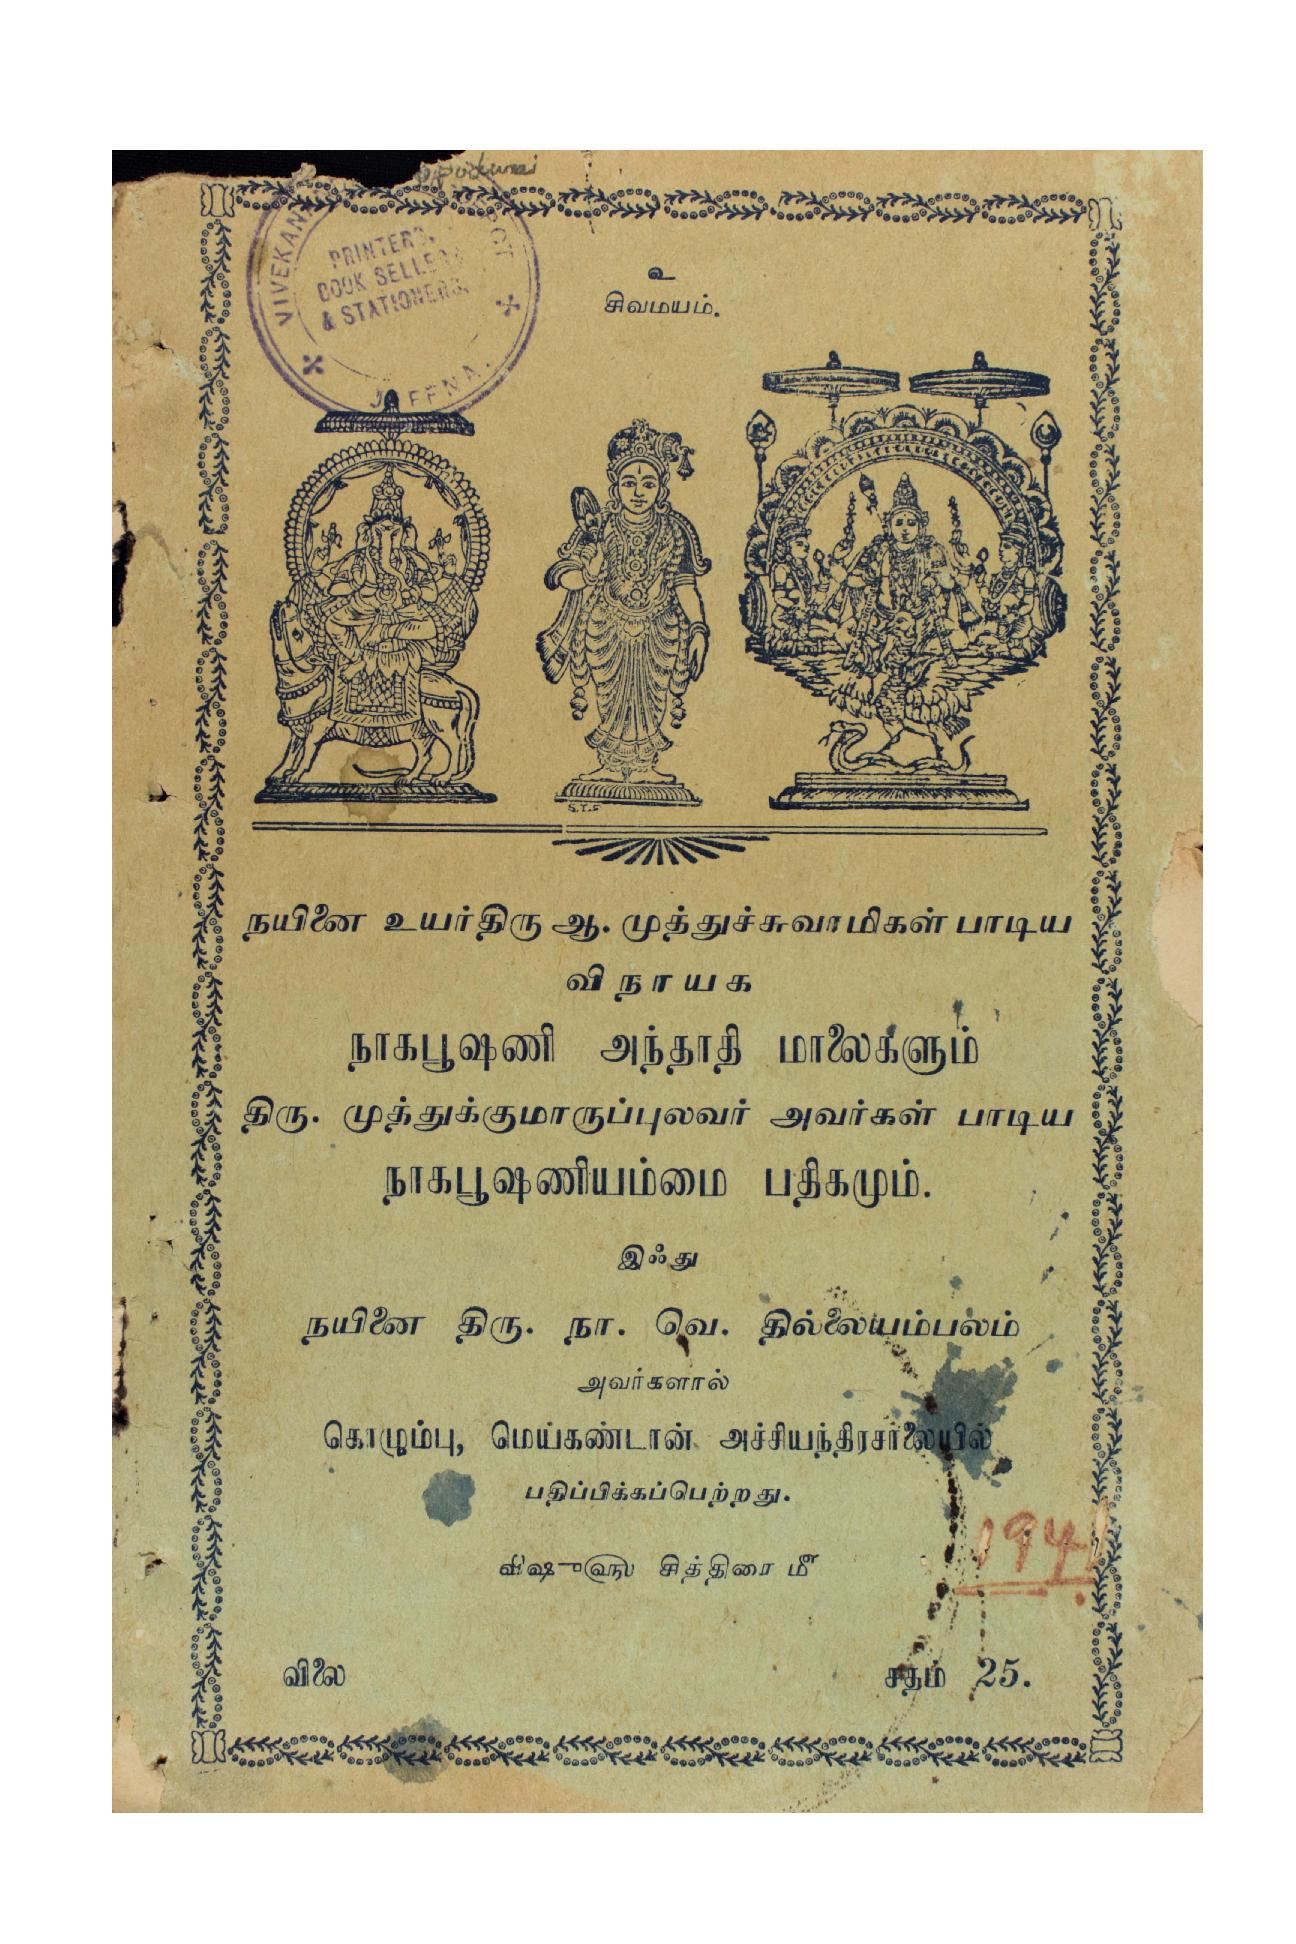 VIVEKAN
PRINTERS,
BOOK SELLERS
& STATIONERS,
JAFFNA.
உ
சிவமயம்.
S.T.S
நயினை உயர்திரு ஆ. முத்துச்சுவாமிகள் பாடிய
விநாயக
நாகபூஷணி அந்தாதி மாலைகளும்
திரு. முத்துக்குமாருப்புலவர் அவர்கள் பாடிய
நாகபூஷணியம்மை பதிகமும்.
இஃது
நயினை திரு. நா. வெ. தில்லையம்பலம்
அவர்களால்
கொழும்பு, மெய்கண்டான் அச்சியந்திரசாலையில்
பதிப்பிக்கப்பெற்றது.
விஷு௵ சித்திரை ௴
1941
விலை சதம் 25.